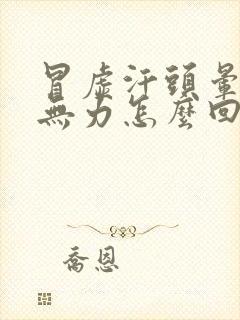 冒虛汗頭暈
無力怎麼回
喬恩